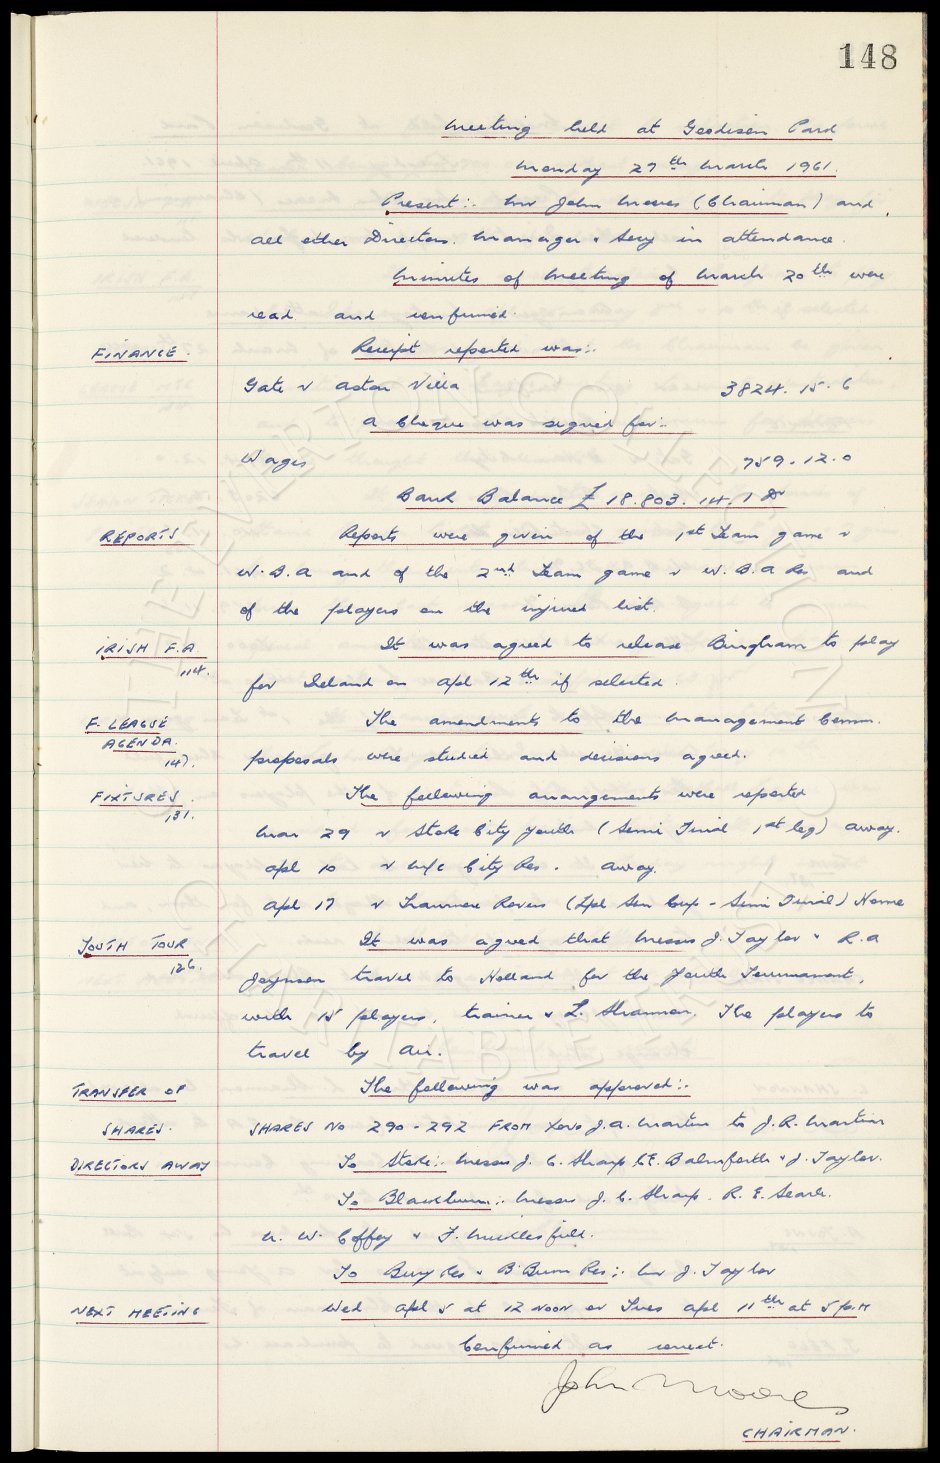 148
Meeting held at Goodison Park
Monday 27th March 1961.
Present:- Mr John Moores (Chairman) and
all other Directors. Manager & Secy in attendance.
Minutes of Meeting of March 20th were
read and confirmed.
FINANCE. Receipt reported was:-
Gate v Aston Villa 3824. 15. 6
A Cheque was signed for:-
Wages 759. 12. 0
Bank Balance £18.803. 14. 1 Dr
REPORTS Reports were given of the 1st Team game v
W.B.A and of the 2nd Team game v W.B.A Res and
of the players on the injured list.
IRISH F.A. It was agreed to release Bingham to play
114.
for Ireland on Apl 12th if selected.
F. LEAGUE The amendments to the Management Comm.
AGENDA.
147. proposals were studied and decisions agreed.
FIXTURES. The following arrangements were reported
131.
Mar 29 v Stoke City Youth (Semi Final 1st leg) away.
Apl 10 v M/c City Res. away.
Apl 17 v Tranmere Rovers (Lpl Sen Cup - Semi Final) Home
YOUTH TOUR It was agreed that Messrs J. Taylor & R.A
126.
Joynson travel to Holland for the Youth Tournament,
with 15 players, trainer & L. Shannon. The players to
travel by Air.
TRANSFER OF The following was approved:-
SHARES. SHARES No 290-292 FROM J.A. Martin to J.R. Martin
DIRECTORS AWAY To Stoke:- Messrs J. C. Sharp C.E. Balmforth & J. Taylor.
To Blackburn:- Messrs J. C. Sharp. R. E. Searle.
N. W. Coffey & F. Micklesfield.
To Bury Res & B'Burn Res:- Mr J. Taylor
NEXT MEETING Wed Apl 5 at 12 NOON or Tues Apl 11th at 5 p.m
Confirmed as correct.
John Moores
CHAIRMAN.